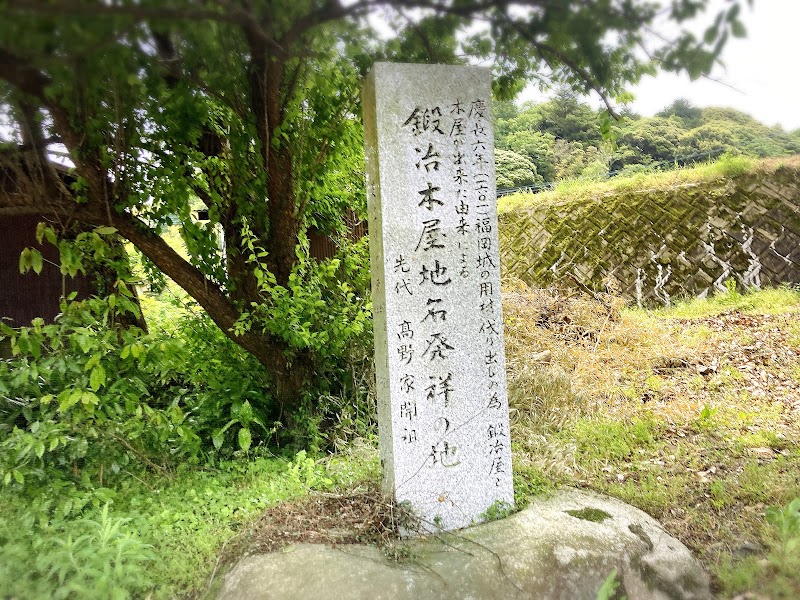 慶長六年(一六〇一)福岡城の用材伐り出しの為 鍛冶屋と
木屋が出来た由来による
鍛冶木屋地名発祥の地
先代 髙野家開祖